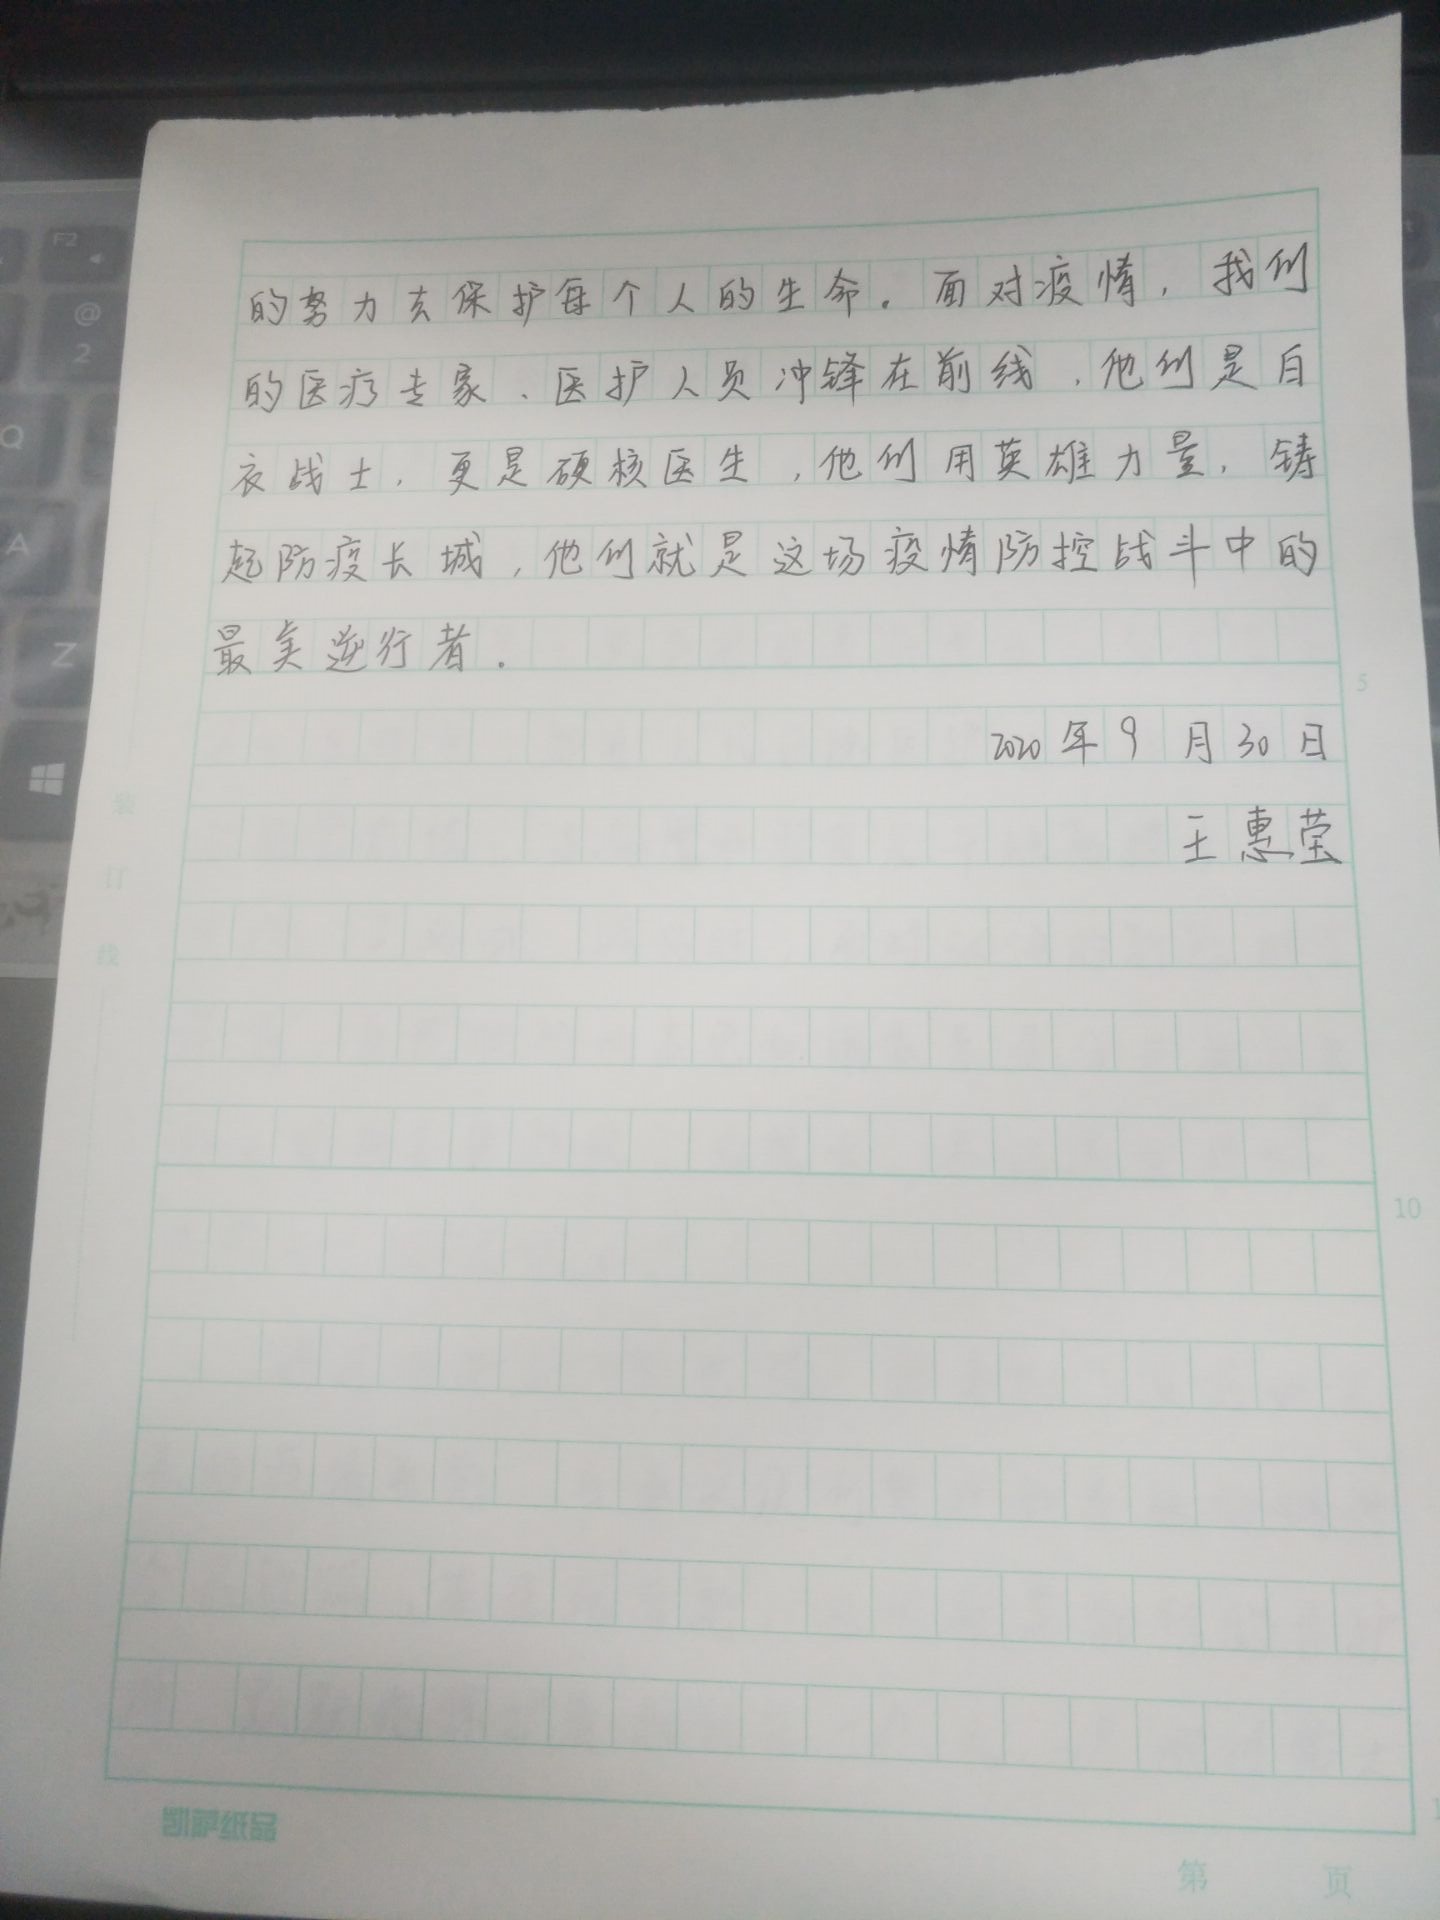 的努力去保护每个人的生命。面对疫情，我们
的医疗专家、医护人员冲锋在前线，他们是白
衣战士，更是硬核医生，他们用英雄力量，铸
起防疫长城，他们就是这场疫情防控战斗中的
最美逆行者。
5
2020年9月30日
王惠莹
装
订
线
10
纸品
第 页
F2
@
2
Q
A
Z